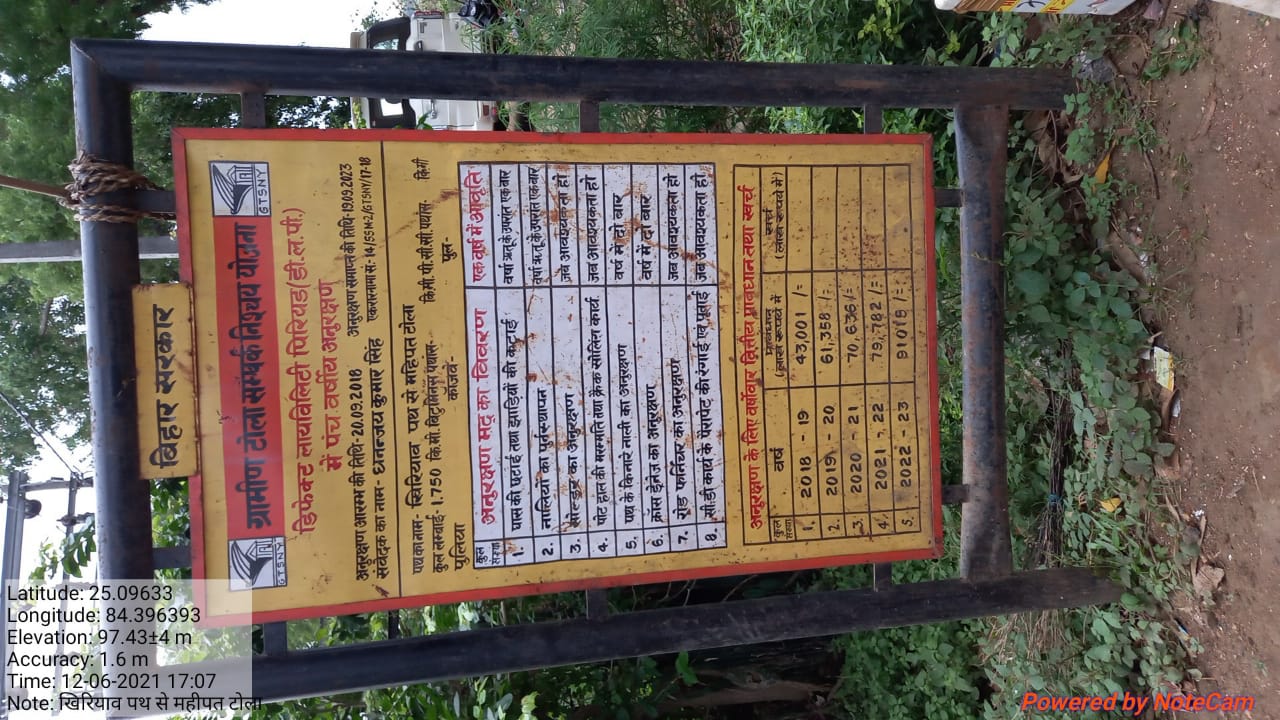 बिहार सरकार
ग्रामीण टोला सम्पर्क निश्चय योजना
GTSNY
GTSNY
डिफेक्ट लायबिलिटी पिरियड(डी.ल.पी.)
में पंच वर्षीय अनुरक्षण
अनुरक्षण आरम्भ की तिथि- 20.09.2018 अनुरक्षण समाप्त की तिथि-19.09.2023
संवेदक का नाम- धनन्जय कुमार सिंह एकरारनामा सं.- 14/SSM-2/GTSNY/17-18
पथ का नाम- खिरियाव पथ से महिपत टोला
कुल लम्बाई- 1.750 कि.मी. बिटुमिनस पथांस- कि.मी. पी.सी.सी. पथांस- कि.मी
पुलिया कॉजवे- पुल-
कुल संख्या अनुरक्षण मद का विवरण एक वर्ष में आवृति
1. घास की छटाई तथा झाड़ियों की कटाई वर्षा ऋतु के उपरांत एक बार
2. नालियों का पुर्नस्थापन वर्षा ऋतु के उपरांत एक बार
3. सोल्डर का अनुरक्षण जब आवश्यकता हो
4. पॉट हाल की मरम्मति तथा क्रैक सीलिंग कार्य. जब आवश्यकता हो
5. पथ के किनारे नाली का अनुरक्षण वर्ष में दो बार
6. क्रास ड्रेनेज का अनुरक्षण वर्ष में दो बार
7. रोड फर्निचर का अनुरक्षण जब आवश्यकता हो
8. सी.डी कार्य के पेरापेट की रंगाई एवं पुताई जब आवश्यकता हो
अनुरक्षण के लिए वर्षवार वित्तीय प्रावधान तथा खर्च
कुल संख्या वर्ष प्रावधान (लाख रूपये में) खर्च (लाख रूपये में)
1. 2018 - 19 43,001 /=
2. 2019 - 20 61,358 /=
3. 2020 - 21 70,636 /=
4. 2021 - 22 79,782 /=
5. 2022 - 23 91015 /=
Latitude: 25.09633
Longitude: 84.396393
Elevation: 97.43±4 m
Accuracy: 1.6 m
Time: 12-06-2021 17:07
Note: खिरियाव पथ से महीपत टोला
Powered by NoteCam